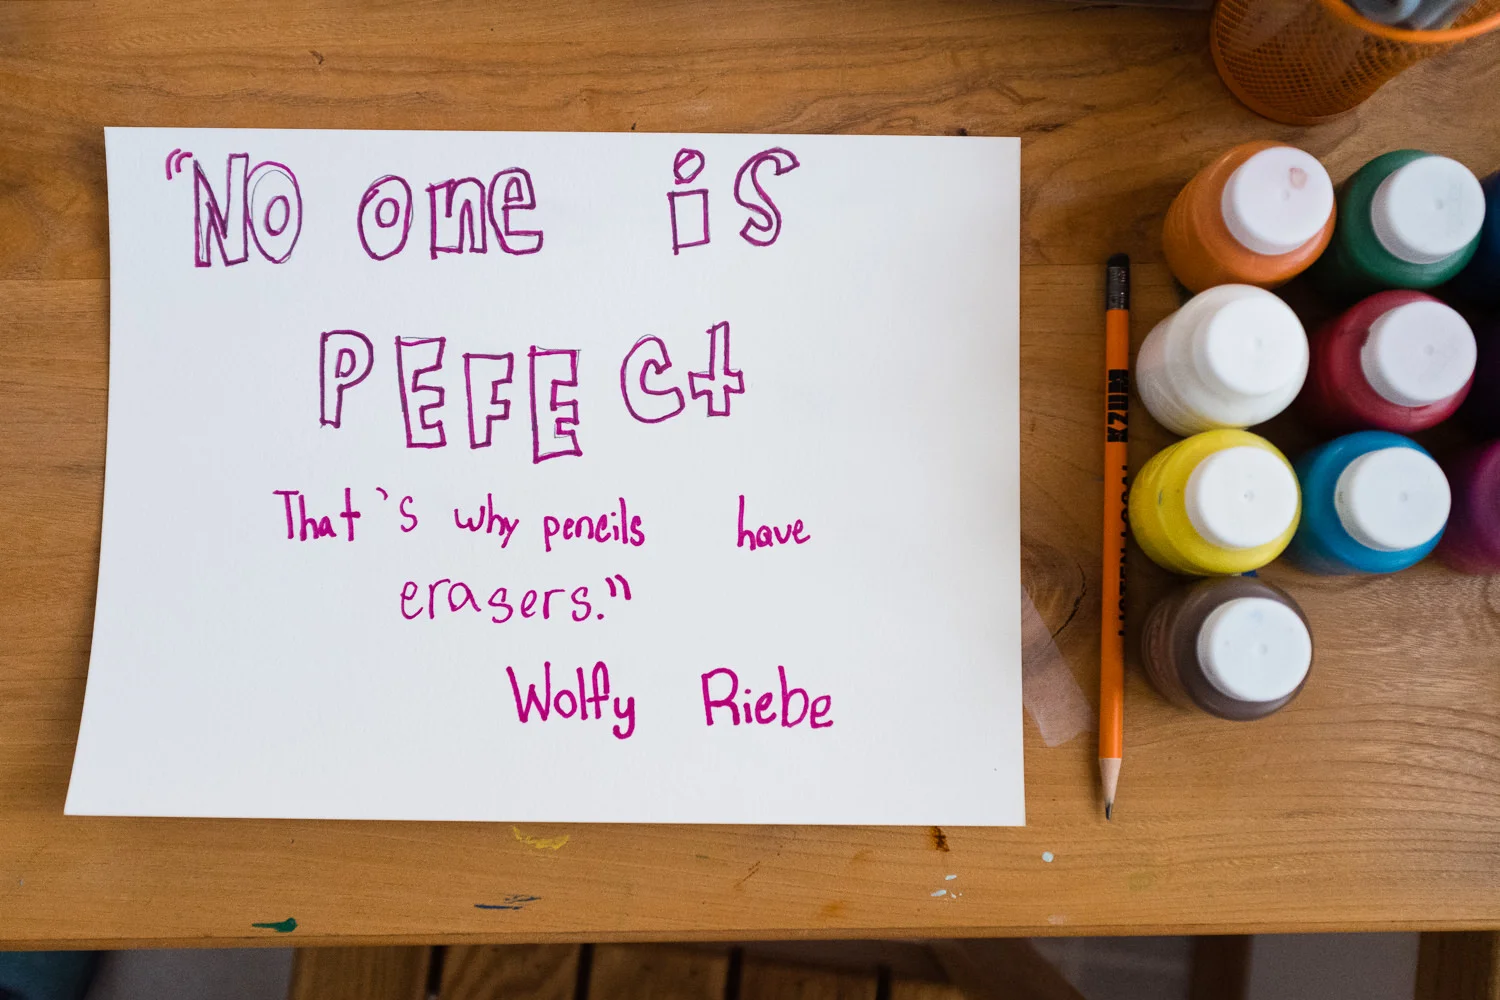 "No one is
PEFECt
That's why pencils have
erasers."
Wolfy Riebe